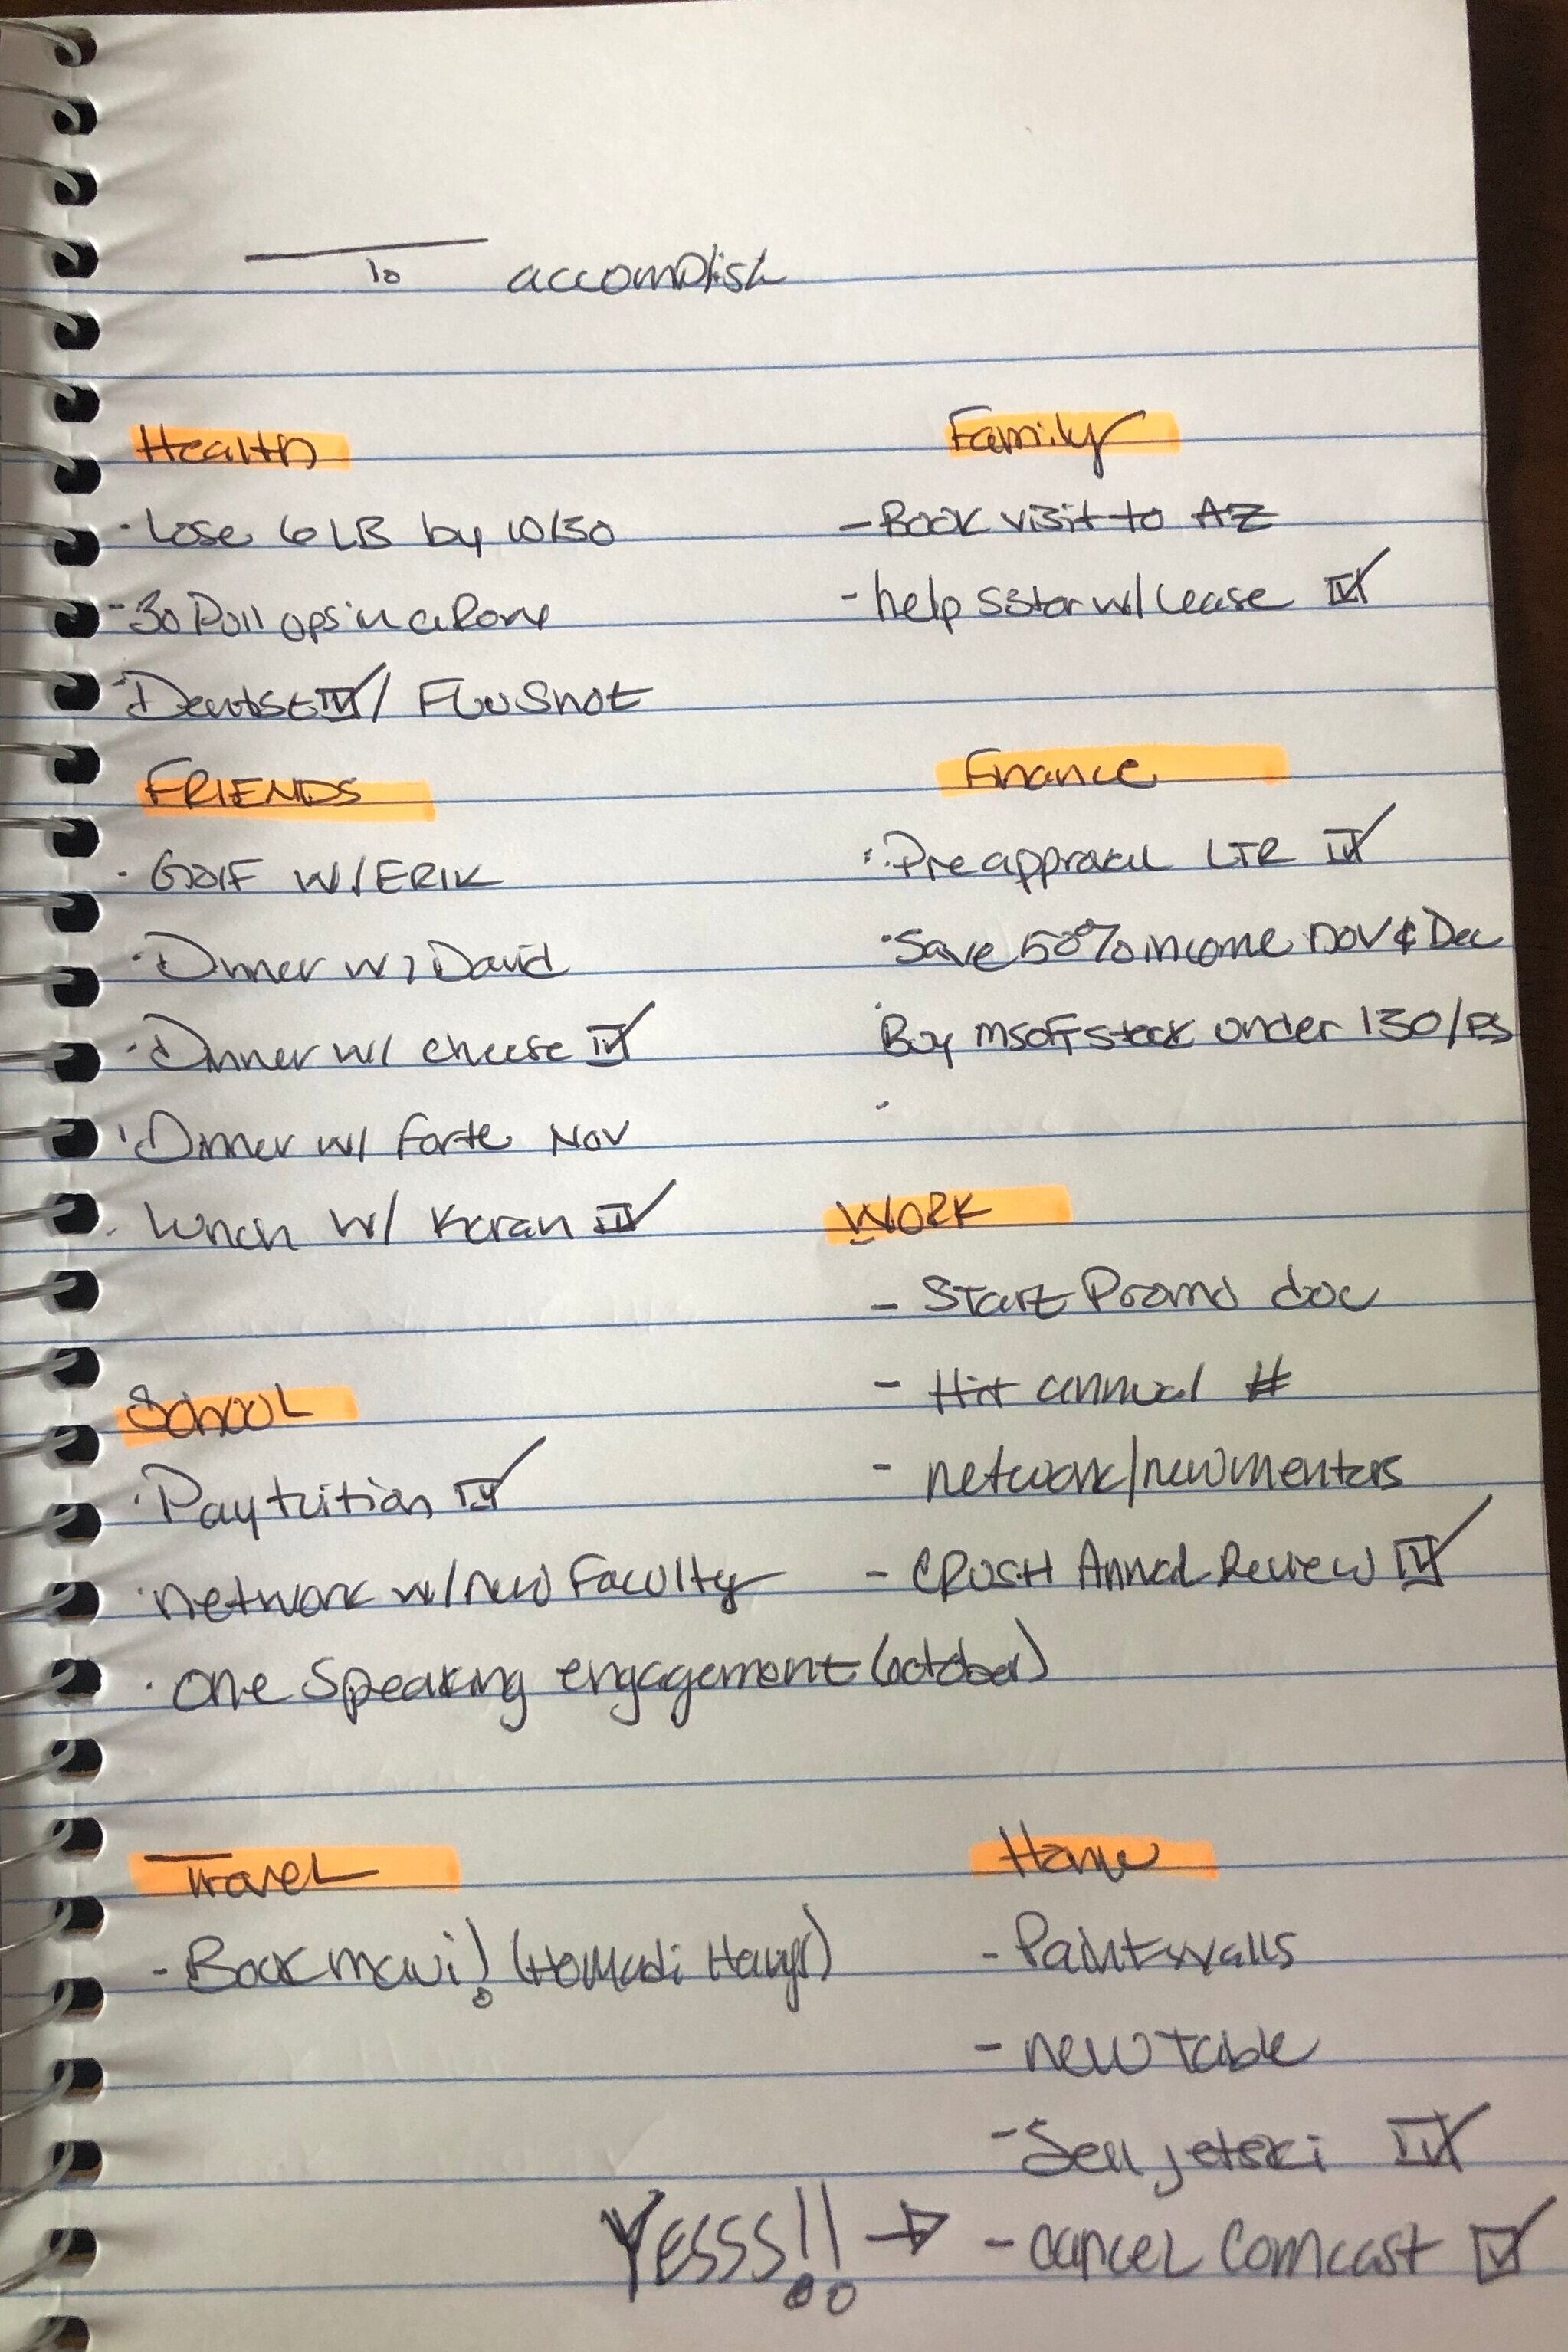 To accomplish
Health
- Lose 6 LB by 10/30
- 30 Pull ups in a Row
- Dentist ☑ / Flu Shot
FRIENDS
· Golf w/ ERIK
· Dinner w/ David
· Dinner w/ cheese ☑
· Dinner w/ Forte Nov
· Lunch w/ Karan ☑
School
· Pay tuition ☑
· network w/ new Faculty
· one Speaking engagement (october)
Travel
- Book maui! (
Family
- Book visit to AZ
- help sister w/ Lease ☑
Finance
· Pre approval LTR ☑
· Save 50% income nov & Dec
· Buy msoft stock under 130/
WORK
- Start Promo doc
- Hit annual #
- network/new mentors
- CRUSH Annual Review ☑
Home
- Paint walls
- new table
- Sell jetski ☑
YESSS!! → - cancel Comcast ☑